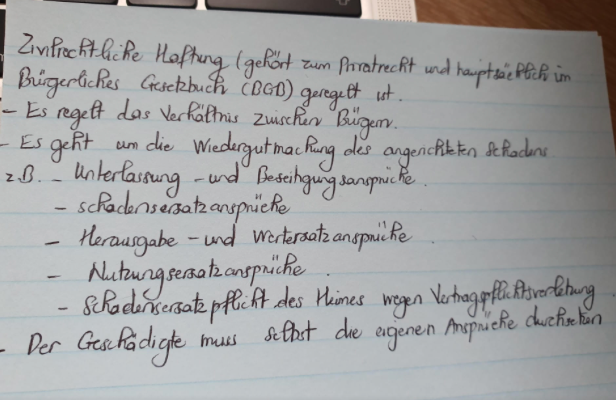 Zivilrechtliche Haftung (gehört zum Privatrecht und hauptsächlich im
Bürgerliches Gesetzbuch (BGB) geregelt ist.
- Es regelt das Verhältnis zwischen Bürgern.
- Es geht um die Wiedergutmachung des angerichteten Schadens
z.B. - Unterlassung - und Beseitigungsansprüche.
- Schadensersatzansprüche
- Herausgabe - und Wertersatzansprüche.
- Nutzungsersatzansprüche.
- Schadensersatzpflicht des Heimes wegen Vertragspflichtsverletzung
- Der Geschädigte muss selbst die eigenen Ansprüche durchsetzen